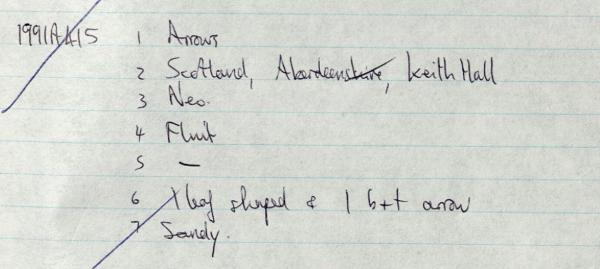 1991AA15 1 Arrows
2 Scotland, Aberdeenshire, Keith Hall
3 Neo.
4 Flint
5 —
6 1 leaf shaped & 1 b+t arrow
7 Sandy.